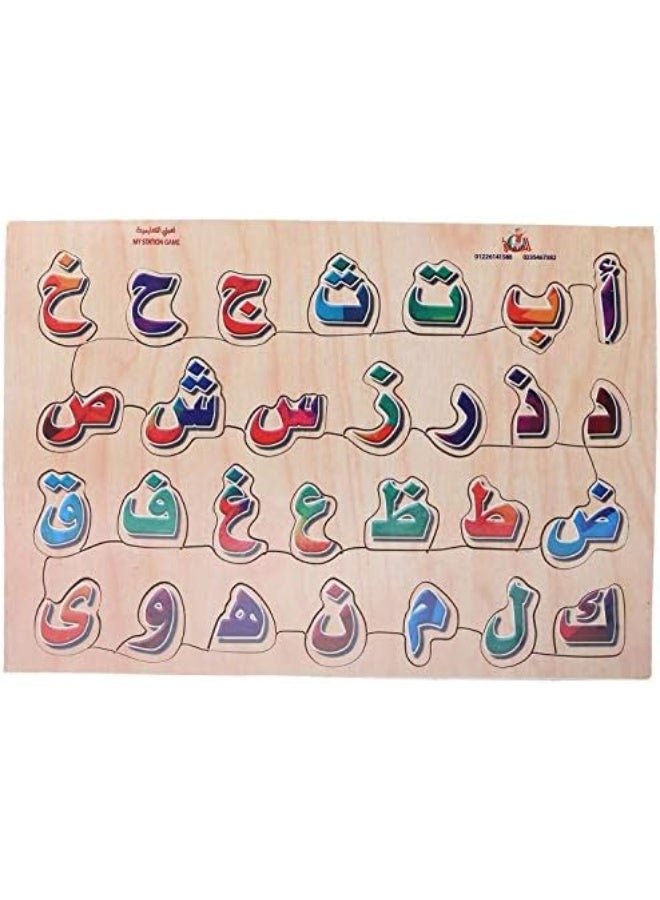 لعبتي التعليمية
MY STATION GAME
01226141588 0235467382
أ ب ت ث ج ح خ
د ذ ر ز س ش ص
ض ط ظ ع غ ف ق
ك ل م ن ه و ى